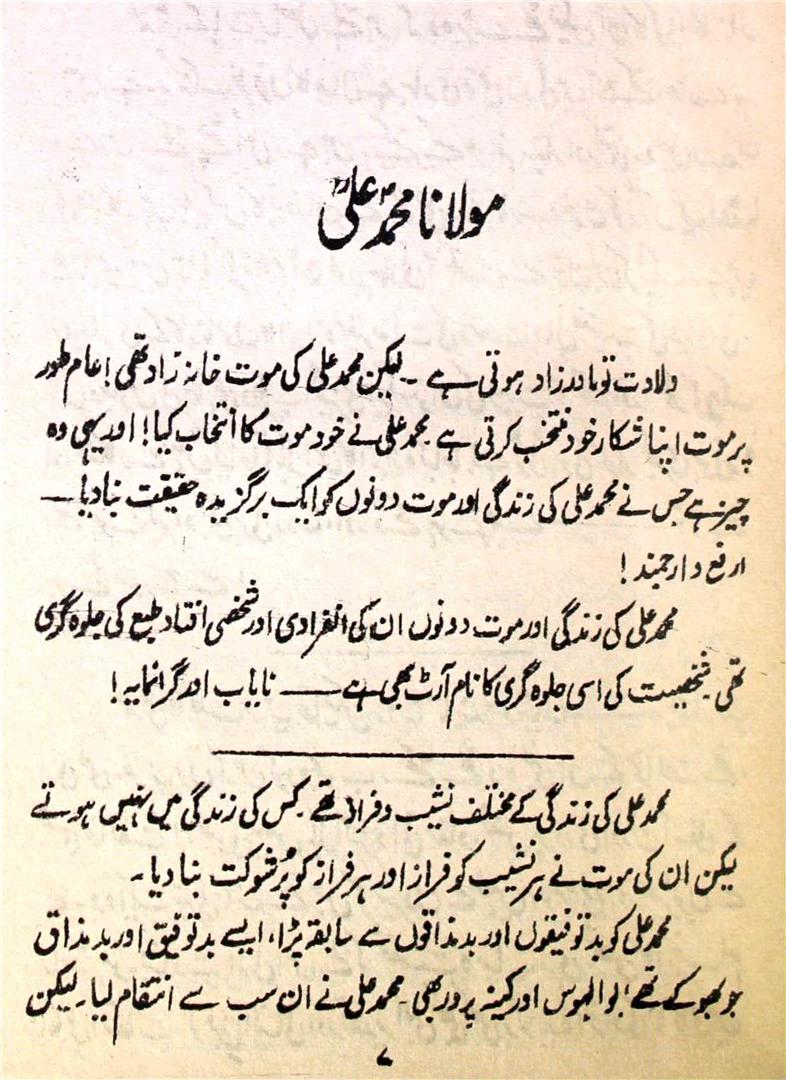 مولانا محمد علیؒ
ولادت تو مادر زاد ہوتی ہے ۔ لیکن محمد علی کی موت خانہ زاد تھی! عام طور
پر موت اپنا شکار خود منتخب کرتی ہے۔ محمد علی نے خود موت کا انتخاب کیا! اور یہی وہ
چیز ہے جس نے محمد علی کی زندگی اور موت دونوں کو ایک برگزیدہ حقیقت بنا دیا —
ارفع و ارجمند!
محمد علی کی زندگی اور موت دونوں ان کی انفرادی اور شخصی افتاد طبع کی جلوہ گری
تھی۔ شخصیت کی اسی جلوہ گری کا نام آرٹ بھی ہے — نایاب اور گرانمایہ!
محمد علی کی زندگی کے مختلف نشیب و فراز تھے۔ کس کی زندگی میں نہیں ہوتے
لیکن ان کی موت نے ہر نشیب کو فراز اور ہر فراز کو پُرشوکت بنا دیا۔
محمد علی کو بدتوفیقوں اور بدمذاقوں سے سابقہ پڑا، ایسے بدتوفیق اور بدمذاق
جو بھوکے تھے، بوالہوس اور کینہ پرور بھی۔ محمد علی نے ان سب سے انتقام لیا۔ لیکن
۷